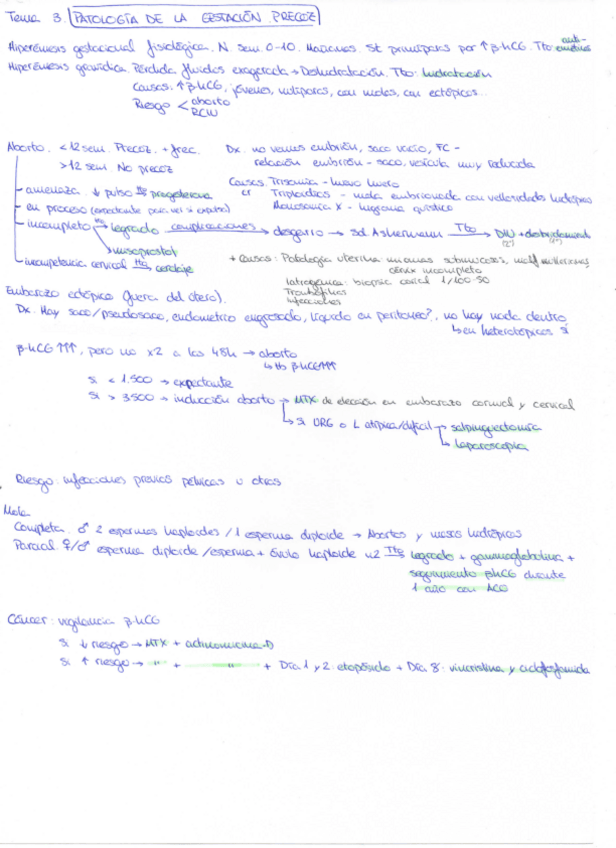 Tema 3. PATOLOGÍA DE LA GESTACIÓN PRECOZ
Hiperémesis gestacional fisiológica. N sem 0-10. Mañanas. St primíparas por ↑β-hCG. Tto: anti-eméticos
Hiperémesis gravídica. Pérdida fluidos exagerada → Deshidratación. Tto: hidratación
Causas: ↑β-hCG, jóvenes, nulíparas, con molas, con ectópicos...
Riesgo < aborto
RCIU
Aborto. <12 sem. Precoz. + frec.
>12 sem No precoz
Dx. no vemos embrión, saco vacío, FC -
relación embrión - saco, vesícula muy reducida
Causas. Trisomía - huevo huero
Triploidías - mola embrionada con vellosidades hidrópicas
Monosomía X - higroma quístico
- amenaza ↓ pulso progesterona
- en proceso (expectante para ver si expulsa)
- incompleto → legrado complicaciones → desgarro → Sd. Ashermann Tto → DIU + desbridamiento
→ misoprostol
- incompetencia cervical Tto → cerclaje
+ Causas: Patología uterina miomas submucosos, malf mullerianas
cérvix incompleto
Iatrogénica: biopsia corial 1/100-50
Trombofilias
Infecciones
Embarazo ectópico (fuera del útero).
Dx. Hay saco/pseudosaco, endometrio engrosado, líquido en peritoneo?, no hay nada dentro
↳ en heterotópicos sí
β-hCG ↑↑↑, pero no x2 a las 48h → aborto
↳ tb β-hCG↑↑↑
Si < 1.500 → expectante
Si > 3500 → inducción aborto → MTX de elección en embarazo cornual y cervical
↳ Si URG o L atípica/difícil → salpinguectomía
↳ laparoscopia
Riesgo: infecciones previas pélvicas u otras
Mola
Completa. ♂ 2 espermas haploides / 1 esperma diploide → Abortos y masas hidrópicas
Parcial ♀/♂ esperma diploide /esperma + óvulo haploide x2 Tto → legrado + gammaglobulina +
seguimiento βhCG durante
1 año con ACO
Cáncer: vigilancia β-hCG
Si ↓ riesgo → MTX + actinomicina-D
Si ↑ riesgo → " + " + Día 1 y 2: etopósido + Día 8: vincristina y ciclofosfamida